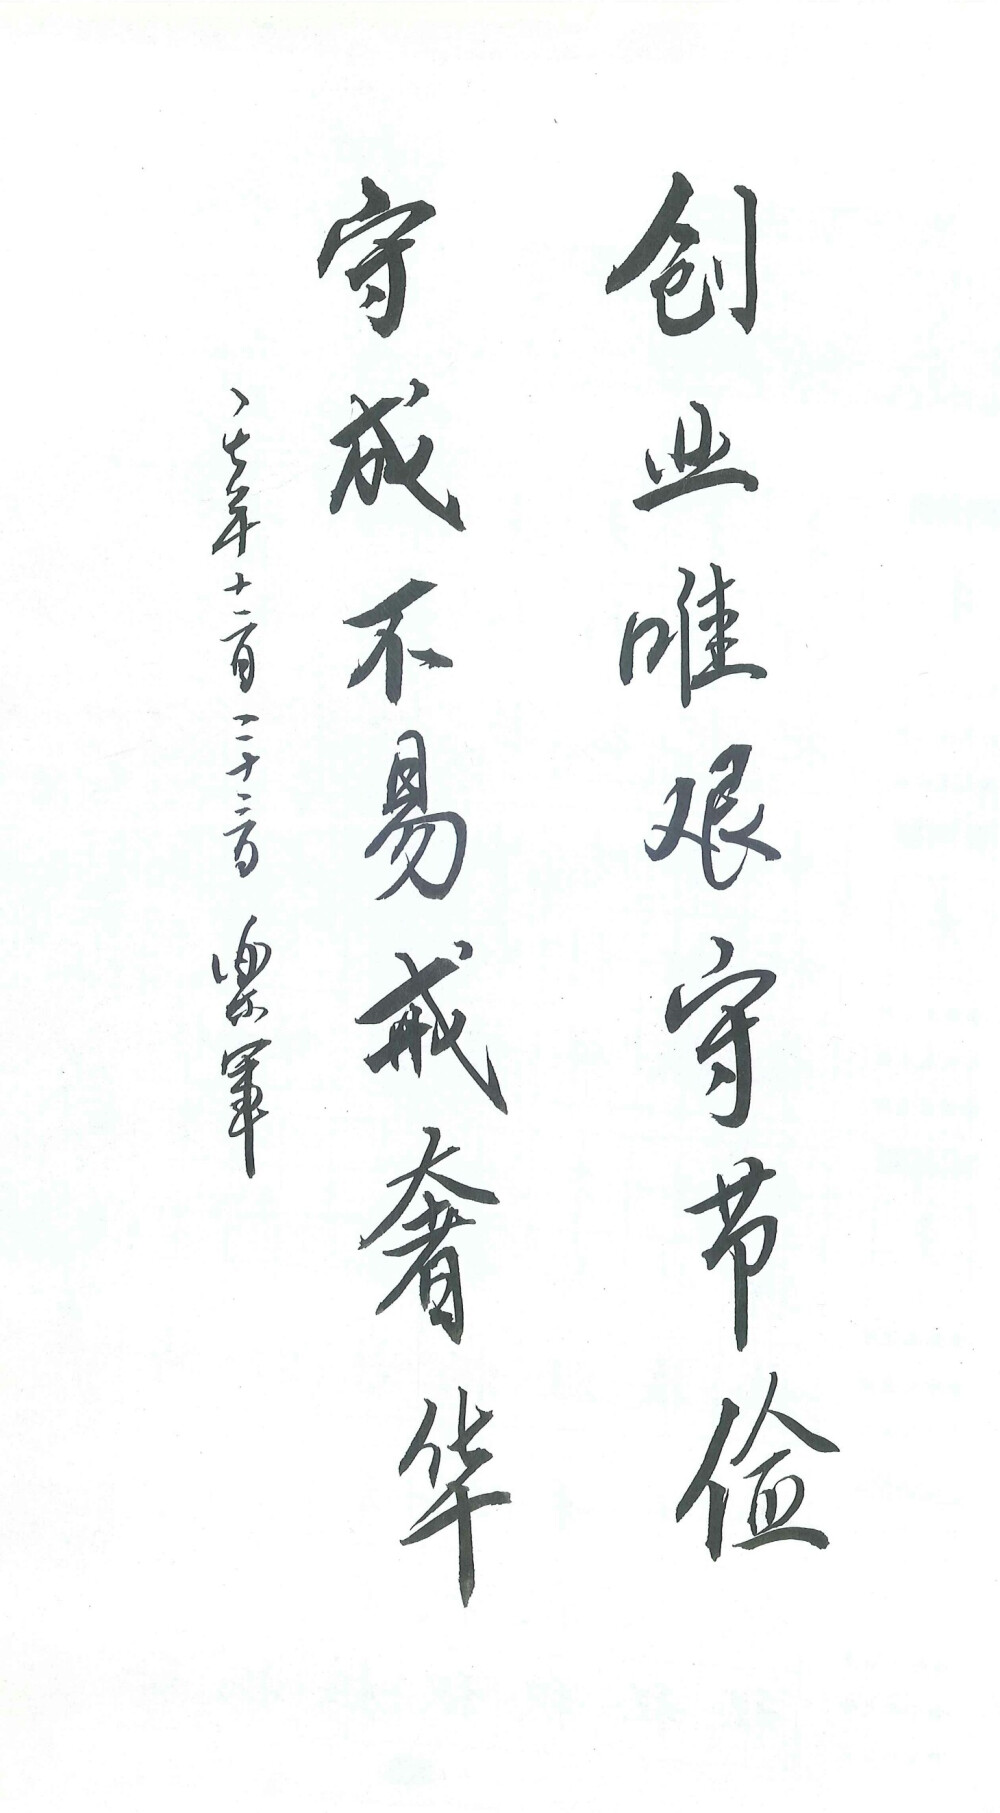 创业唯艰守节俭
守成不易戒奢华
一七年十二月二十二日 乐军